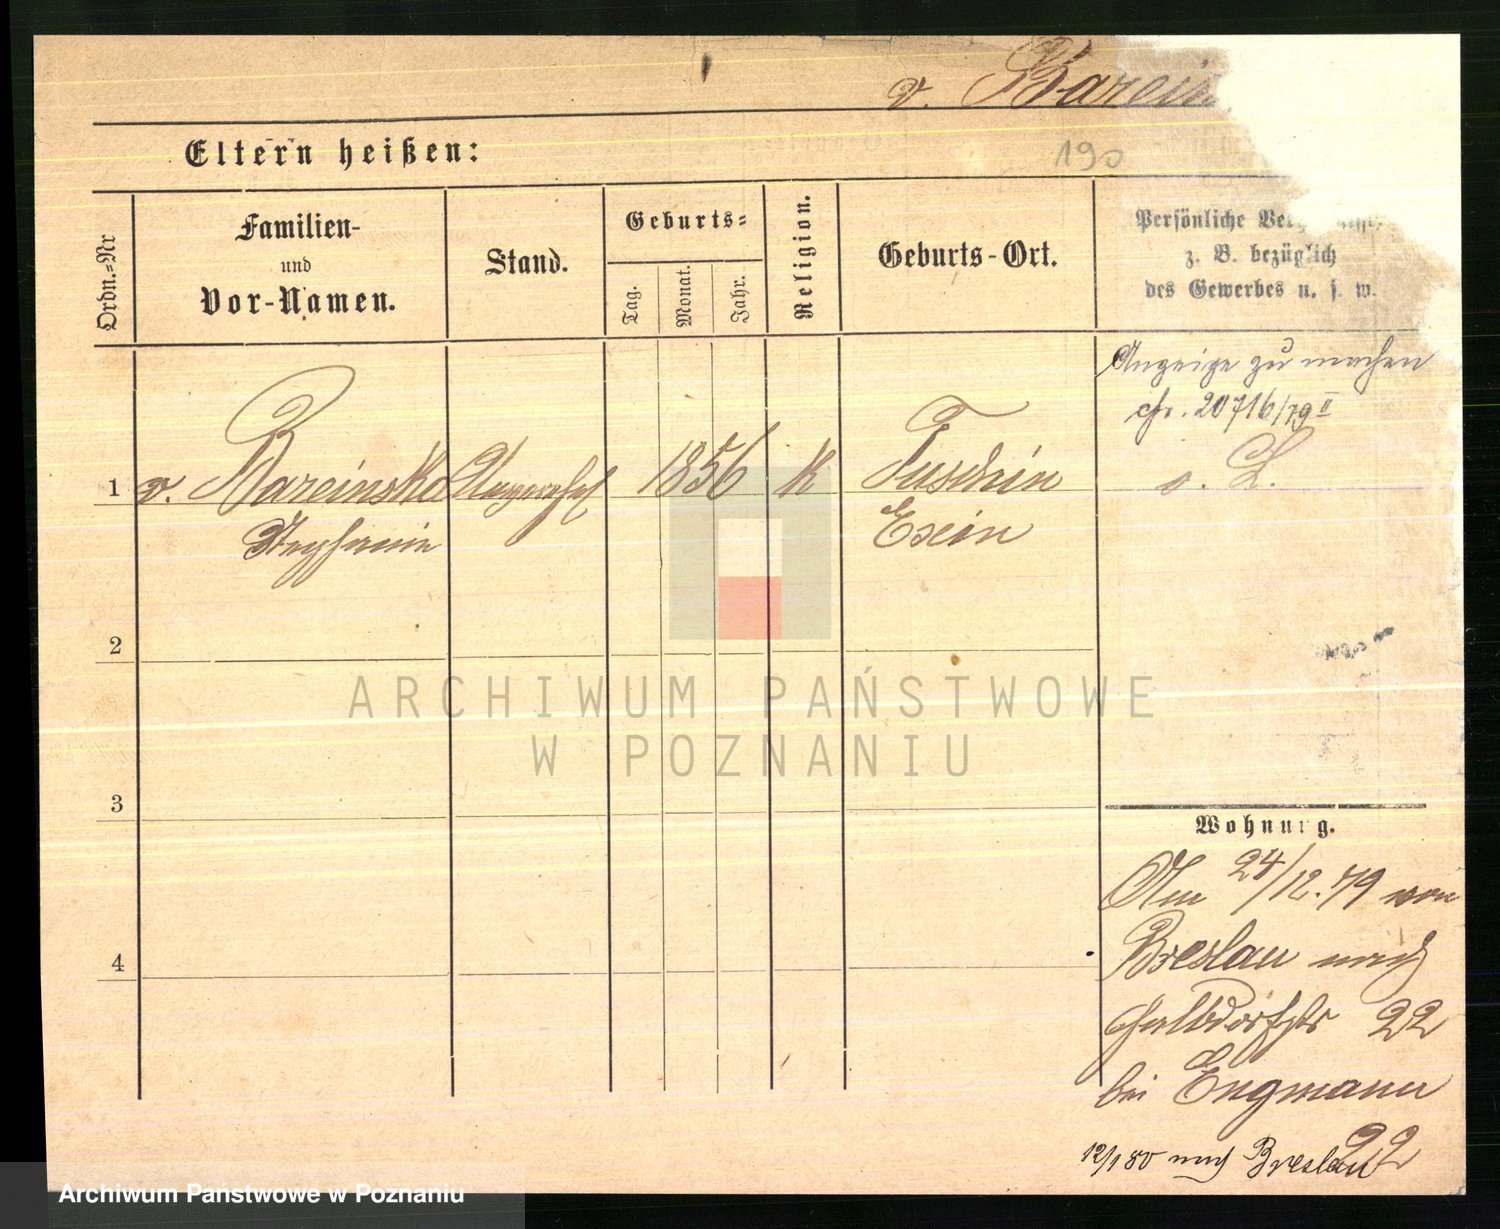 v. Barcin
Eltern heißen:
190
Ordn.-Nr
Familien-
und
Vor-Namen.
Stand.
Geburts-
Tag.
Monat.
Jahr.
Religion.
Geburts-Ort.
Persönliche
z. B. bezüglich
des Gewerbes u. s. w.
Anzeige zu machen
cfr. 20716/79 II
1
v. Barcinska
1856
K
Exin
2
3
4
Wohnung.
Am 24/12. 79 von
Breslau nach
Halbdorfstr 22
bei Engmann
22
12/1 80 nach Breslau
ARCHIWUM PAŃSTWOWE
W POZNANIU
Archiwum Państwowe w Poznaniu